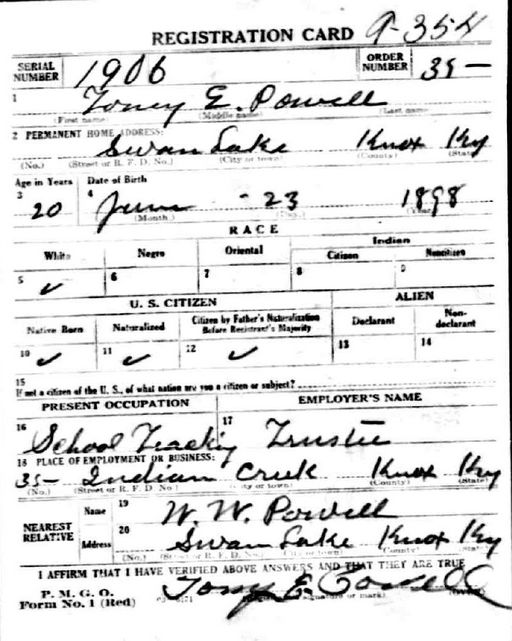 REGISTRATION CARD
SERIAL NUMBER 1906 ORDER NUMBER 35-
1 Toney E. Powell
(First name) (Middle name) (Last name)
2 PERMANENT HOME ADDRESS:
Swan Lake Knox Ky
(No.) (Street or R. F. D. No.) (City or town) (County) (State)
Age in Years Date of Birth
3 20 4 June - 23 1898
(Month.) (Day.) (Year.)
RACE
White Negro Oriental Indian
Citizen Noncitizen
5 ✓ 6 7 8 9
U. S. CITIZEN ALIEN
Native Born Naturalized Citizen by Father's Naturalization Before Registrant's Majority Declarant Non-declarant
10 ✓ 11 ✓ 12 ✓ 13 14
15
If not a citizen of the U. S., of what nation are you a citizen or subject?
PRESENT OCCUPATION EMPLOYER'S NAME
16 School Teaching 17 Trustee
18 PLACE OF EMPLOYMENT OR BUSINESS:
35- Indian Creek Knox Ky
(No.) (Street or R. F. D. No.) (City or town) (County) (State)
NEAREST RELATIVE
Name 19 W. W. Powell
Address 20 Swan Lake Knox Ky
(No.) (Street or R. F. D. No.) (City or town) (County) (State)
I AFFIRM THAT I HAVE VERIFIED ABOVE ANSWERS AND THAT THEY ARE TRUE
P. M. G. O.
Form No. 1 (Red) Toney E Powell
(Registrant's signature or mark)